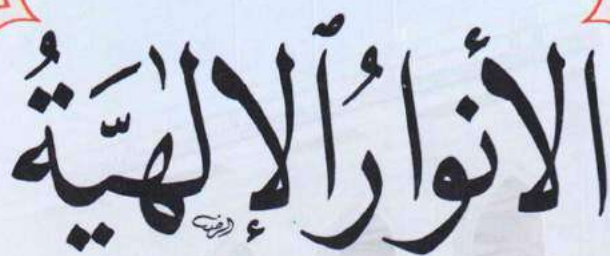 الأنوارُ ٱلإلٰهيَّةُ